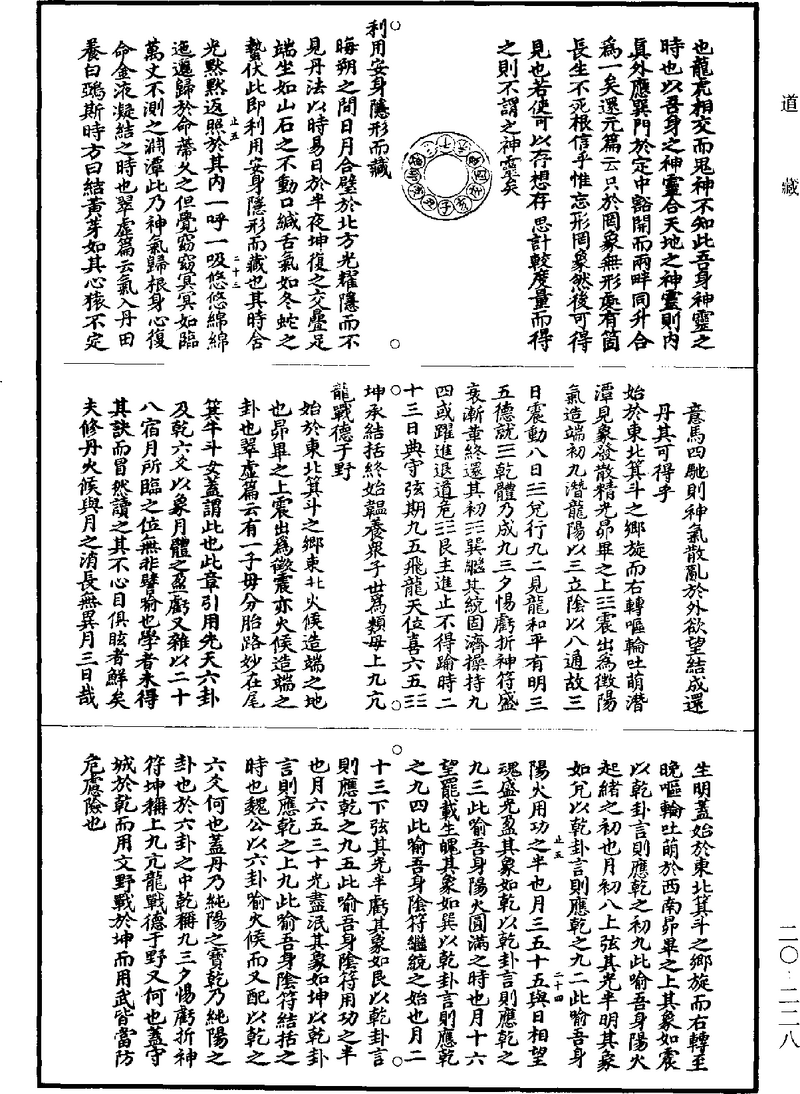 道藏
也龍虎相交而鬼神不知此吾身神靈之
時也以吾身之神靈合天地之神靈則內
真外應巽門於定中豁開而兩畔同升合
為一矣還元篇云只於罔象無形處有箇
長生不死根信乎惟忘形罔象然後可得
見也若使可以存想存思計較度量而得
之則不謂之神靈矣
利用安身隱形而藏
晦朔之間日月合璧於北方光耀隱而不
見丹法以時易日於半夜坤復之交疊足
端坐如山石之不動口緘舌氣如冬蛇之
蟄伏此即利用安身隱形而藏也其時含
光默默返照於其內一呼一吸悠悠綿綿
迤邐歸於命蒂久之但覺窈窈冥冥如臨
萬丈不測之淵潭此乃神氣歸根身心復
命金液凝結之時也翠虛篇云氣入丹田
養白鵶斯時方曰結黃芽如其心猿不定
止五
二十三
意馬四馳則神氣散亂於外欲望結成還
丹其可得乎
始於東北箕斗之鄉旋而右轉嘔輪吐萌潛
潭見象發散精光昴畢之上☳震出為徵陽
氣造端初九潛龍陽以三立陰以八通故三
日震動八日☱兌行九二見龍和平有明三
五德就☰乾體乃成九三夕惕虧折神符盛
衰漸革終還其初☴巽繼其統固濟操持九
四或躍進退道危☶艮主進止不得踰時二
十三日典守弦期九五飛龍天位喜六五☷
坤承結括終始韞養衆子世為類母上九亢
龍戰德于野
始於東北箕斗之鄉東北火候造端之地
也昴畢之上震出為徵震亦火候造端之
卦也翠虛篇云有一子母分胎路妙在尾
箕牛斗女蓋謂此也此章引用先天六卦
及乾六爻以象月體之盈虧又雜以二十
八宿月所臨之位無非譬喻也學者未得
其訣而冒然讀之其不心目俱眩者鮮矣
夫修丹火候與月之消長無異月三日哉
生明蓋始於東北箕斗之鄉旋而右轉至
晚嘔輪吐萌於西南昴畢之上其象如震
以乾卦言則應乾之初九此喻吾身陽火
起緒之初也月初八上弦其光半明其象
如兌以乾卦言則應乾之九二此喻吾身
止五
二十四
陽火用功之半也月三五十五與日相望
魂盛光盈其象如乾以乾卦言則應乾之
九三此喻吾身陽火圓滿之時也月十六
望罷載生魄其象如巽以乾卦言則應乾
之九四此喻吾身陰符繼統之始也月二
十三下弦其光半虧其象如艮以乾卦言
則應乾之九五此喻吾身陰符用功之半
也月六五三十光盡泯其象如坤以乾卦
言則應乾之上九此喻吾身陰符結括之
時也魏公以六卦喻火候而又配以乾之
六爻何也蓋丹乃純陽之寶乾乃純陽之
卦也於六卦之中乾稱九三夕惕虧折神
符坤稱上九亢龍戰德于野又何也蓋守
城於乾而用文野戰於坤而用武皆當防
危慮險也
二〇·二二八